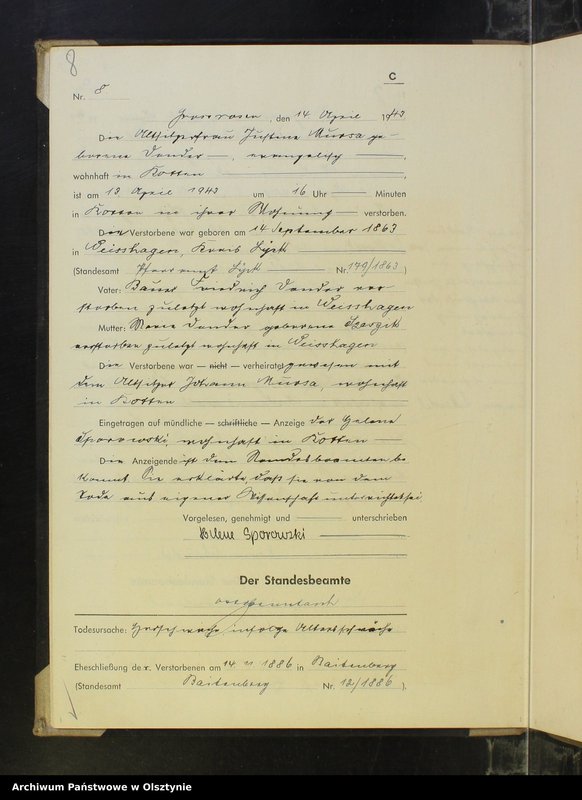 8
C
Nr. 8
Grossrosen, den 14. April 1943
Die Altsitzerfrau Justine Mursa ge-
borene Dander —, evangelisch —,
wohnhaft in Kotten —,
ist am 13. April 1943 um 16 Uhr — Minuten
in Kotten in ihrer Wohnung — verstorben.
Die Verstorbene war geboren am 14. September 1863
in Weisshagen, Kreis Lyck —
(Standesamt Pfarramt Lyck — Nr. 179/1863)
Vater: Bauer Friedrich Dander ver-
storben zuletzt wohnhaft in Weisshagen
Mutter: Marie Dander geborene
verstorben zuletzt wohnhaft in Weisshagen
Die Verstorbene war — nicht — verheiratet gewesen mit
dem Altsitzer Johann Mursa, wohnhaft
in Kotten
Eingetragen auf mündliche — schriftliche — Anzeige der Helene
Sporowski wohnhaft in Kotten —
Die Anzeigende ist dem Standesbeamten be-
kannt. Sie erklärte, daß sie von dem
Tode aus eigener Wissenschaft unterrichtet sei
Vorgelesen, genehmigt und — unterschrieben
Helene Sporowski —
Der Standesbeamte
Todesursache: Herzschwäche infolge Altersschwäche
Eheschließung der Verstorbenen am 14.11.1886 in Baitenberg
(Standesamt Baitenberg Nr. 12/1886).
Archiwum Państwowe w Olsztynie